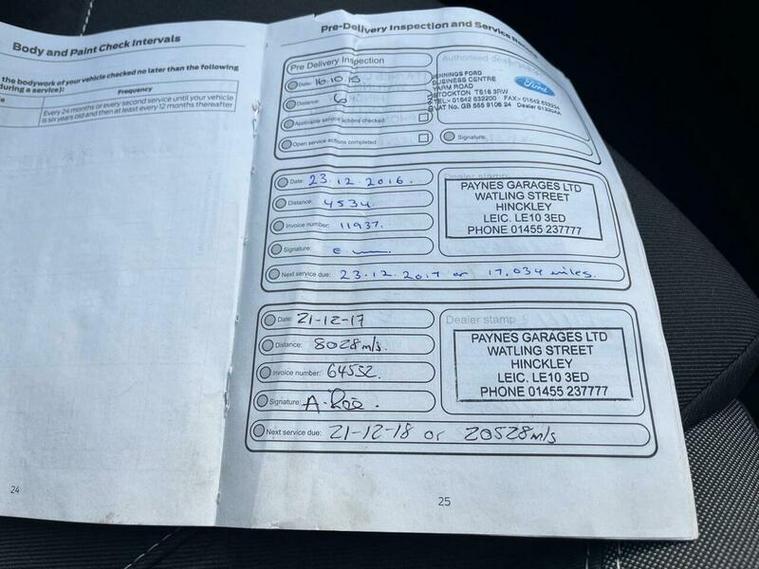 Body and Paint Check Intervals
the bodywork of your vehicle checked no later than the following
during a service):
Frequency
Every 24 months or every second service until your vehicle
is six years old and then at least every 12 months thereafter
24
Pre-Delivery Inspection and Service
Pre Delivery Inspection
Date: 16.10.15
Distance: 6
Applicable service actions checked
Open service actions completed
Authorised dealer
JENNINGS FORD
BUSINESS CENTRE
YARM ROAD
STOCKTON TS18 3RW
TEL: 01642 632200 FAX: 01642
VAT No. GB 555 9106 24 Dealer
Ford
Signature:
Date: 23.12.2016.
Distance: 4534.
Invoice number: 11937.
Signature:
Next service due: 23.12.2017 or 17,034 miles.
Dealer stamp
PAYNES GARAGES LTD
WATLING STREET
HINCKLEY
LEIC. LE10 3ED
PHONE 01455 237777
Date: 21-12-17
Distance: 8028m/s.
Invoice number: 64552.
Signature: A. Roe.
Next service due: 21-12-18 or 20528m/s
Dealer stamp
PAYNES GARAGES LTD
WATLING STREET
HINCKLEY
LEIC. LE10 3ED
PHONE 01455 237777
25